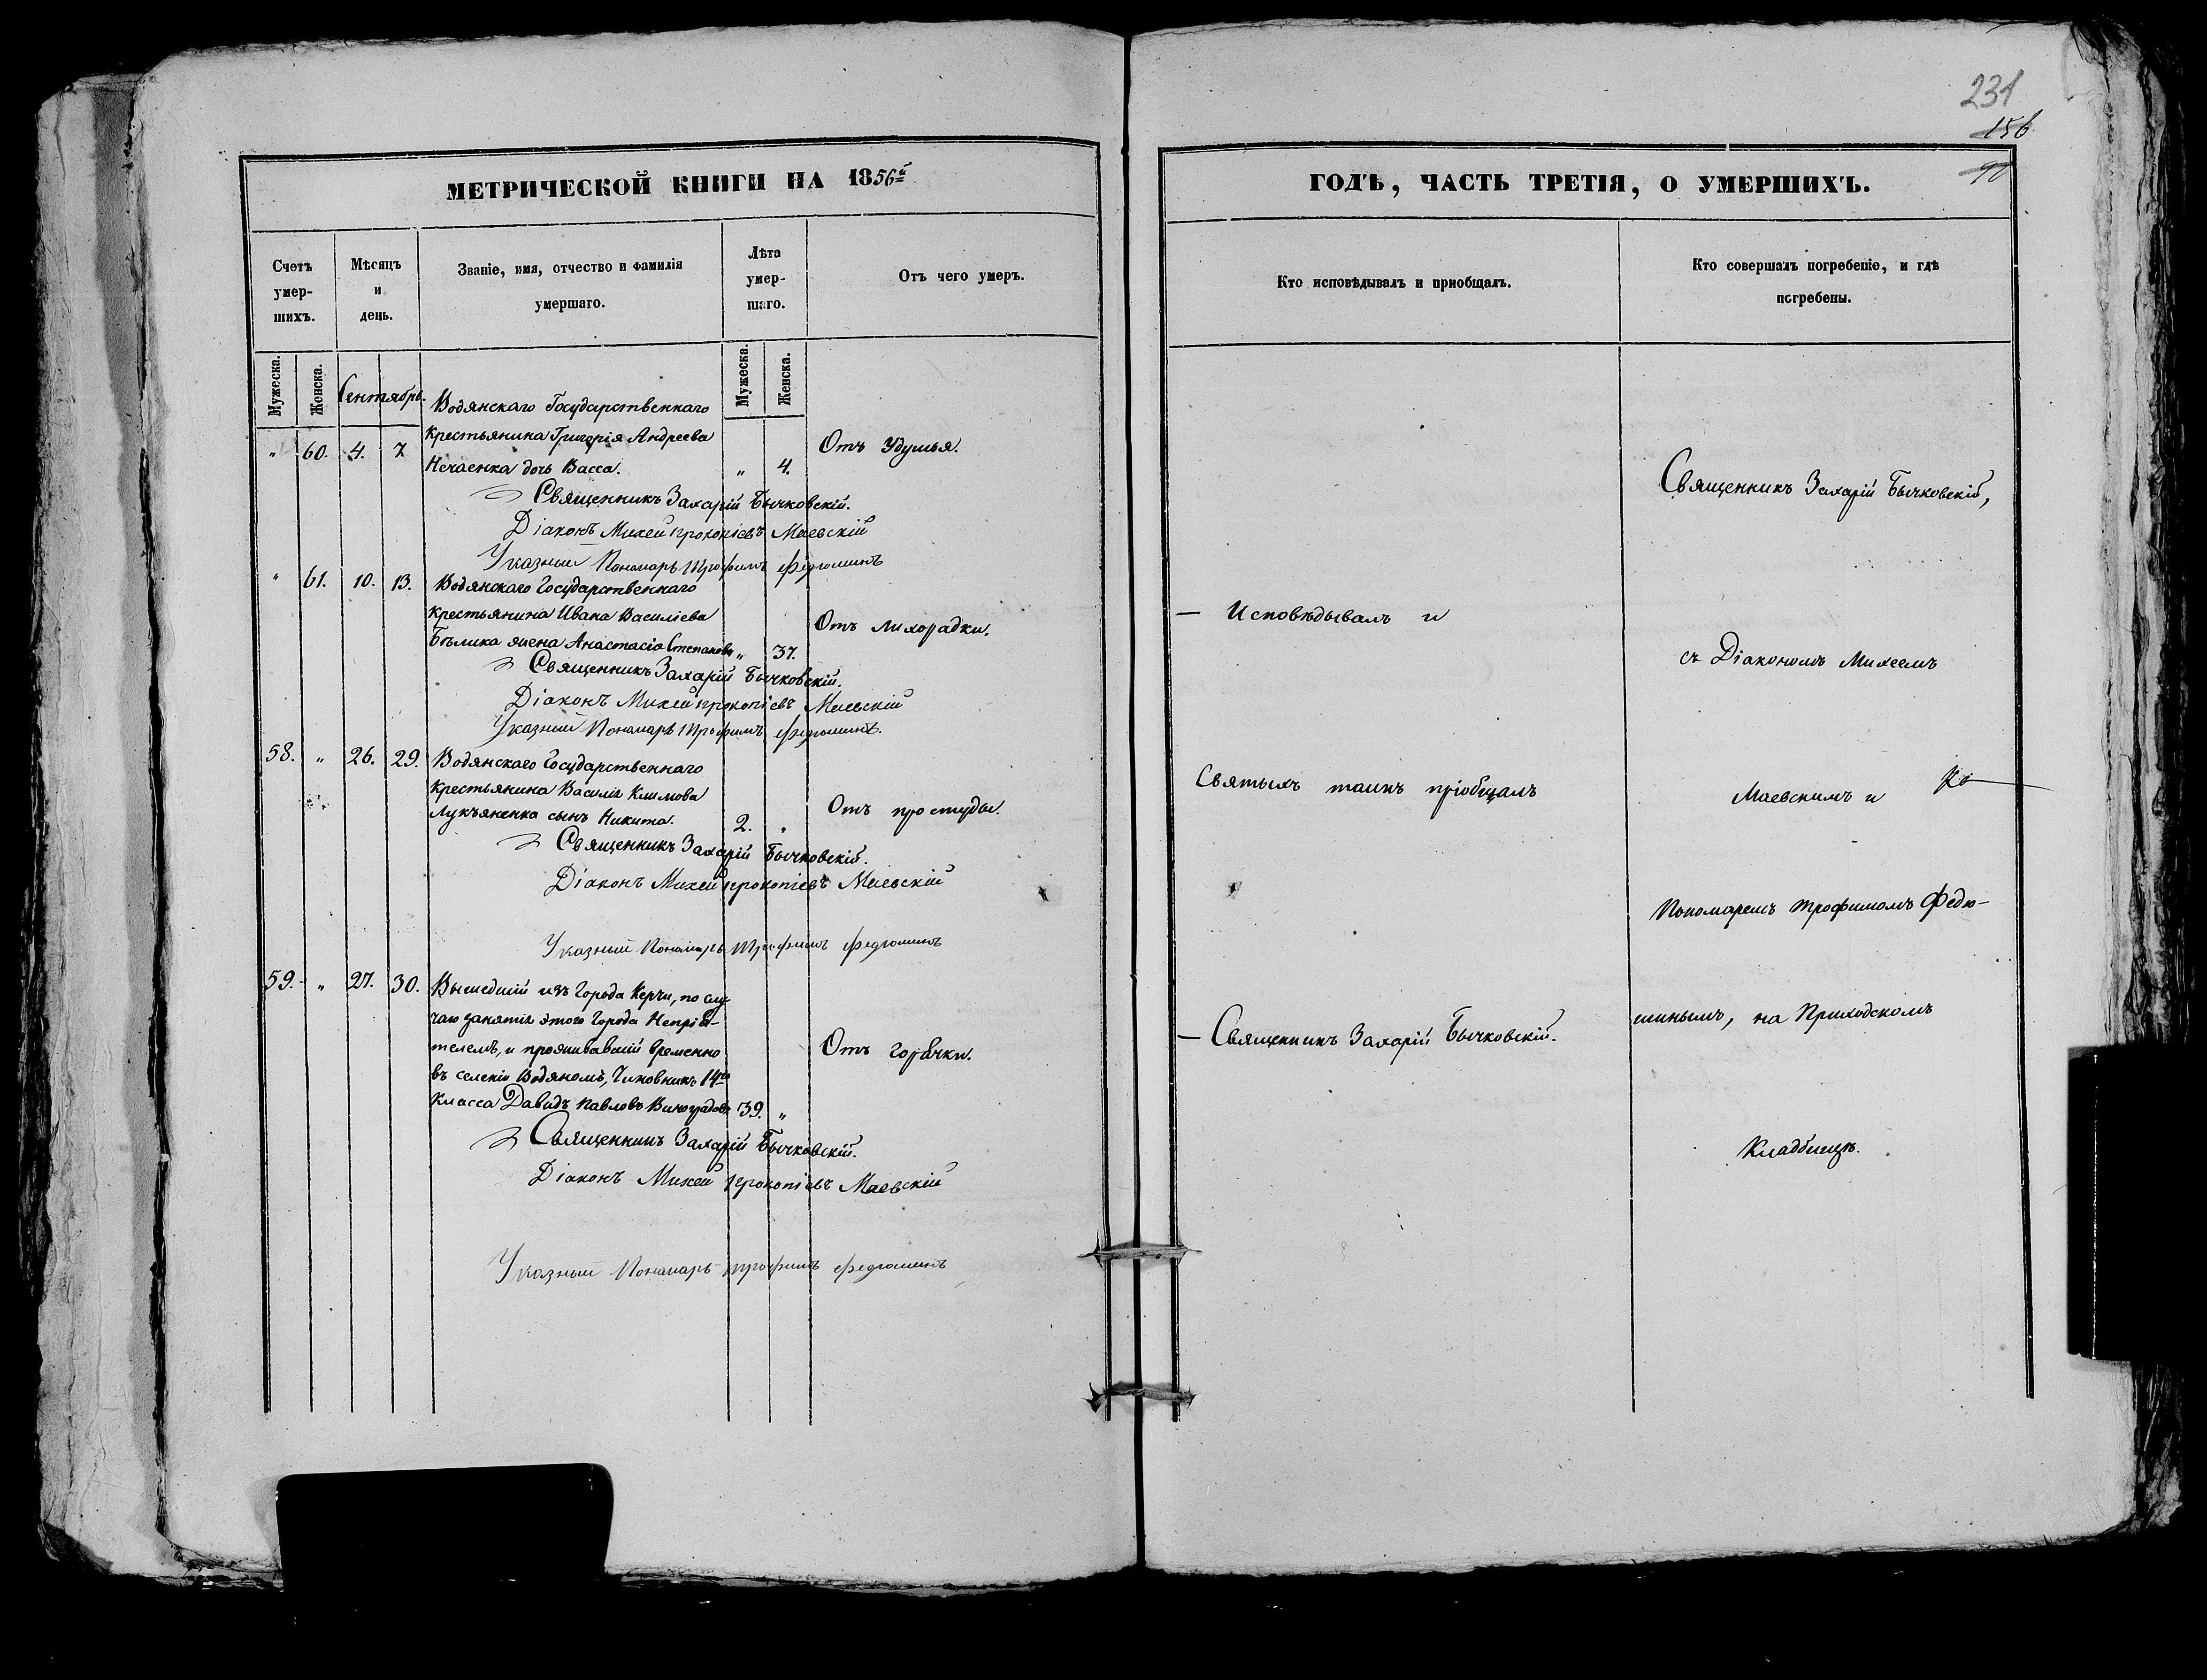 231
156
90
МЕТРИЧЕСКОЙ КНИГИ НА 1856й
Счетъ умер-шихъ.
Мѣсяцъ и день.
Званіе, имя, отчество и фамилія умершаго.
Лѣта умер-шаго.
Отъ чего умеръ.
Мужеска.
Женска.
Сентябрь.
Мужеска.
Женска.
Водянскаго Государственнаго
" 60. 4. 7 Крестьянина Григорія Андреева
Отъ Удушья.
Нечаенка дочь Васса. " 4.
Священникъ Захарій Бычковскій.
Діаконъ Михей Прокопіевъ Маевскій
Указный Пономарь Трофимъ Федюшинъ
" 61. 10. 13. Водянскаго Государственнаго
Крестьянина Ивана Василіева
Отъ лихорадки.
Бѣлика жена Анастасія Степанова " 37.
Священникъ Захарій Бычковскій.
Діаконъ Михей Прокопіевъ Маевскій
Указный Пономарь Трофимъ Федюшинъ.
58. " 26. 29. Водянскаго Государственнаго
Крестьянина Василія Климова
Отъ простуды.
Лукъяненка сынъ Никита. 2. "
Священникъ Захарій Бычковскій.
Діаконъ Михей Прокопіевъ Маевскій
Указный Пономарь Трофимъ Федюшинъ
59. " 27. 30. Вышедшій изъ Города Керчи, по слу-
чаю занятія этого Города Непрія-
телемъ, и проживавшій временно
Отъ горячки.
въ селеніи Водяномъ, Чиновникъ 14го
Класса Давидъ Павловъ Виноградовъ 39. "
Священникъ Захарій Бычковскій.
Діаконъ Михей Прокопіевъ Маевскій
Указный Пономарь Трофимъ Федюшинъ
ГОДЪ, ЧАСТЬ ТРЕТІЯ, О УМЕРШИХЪ.
Кто исповѣдывалъ и пріобщалъ.
Кто совершалъ погребеніе, и гдѣ
погребены.
— Исповѣдывалъ и
Святыхъ таинъ пріобщалъ
— Священникъ Захарій Бычковскій.
Священникъ Захарій Бычковскій,
съ Діакономъ Михеемъ
Маевскимъ и
Пономаремъ Трофимомъ Федю-
шинымъ, на Приходскомъ
Кладбищѣ.